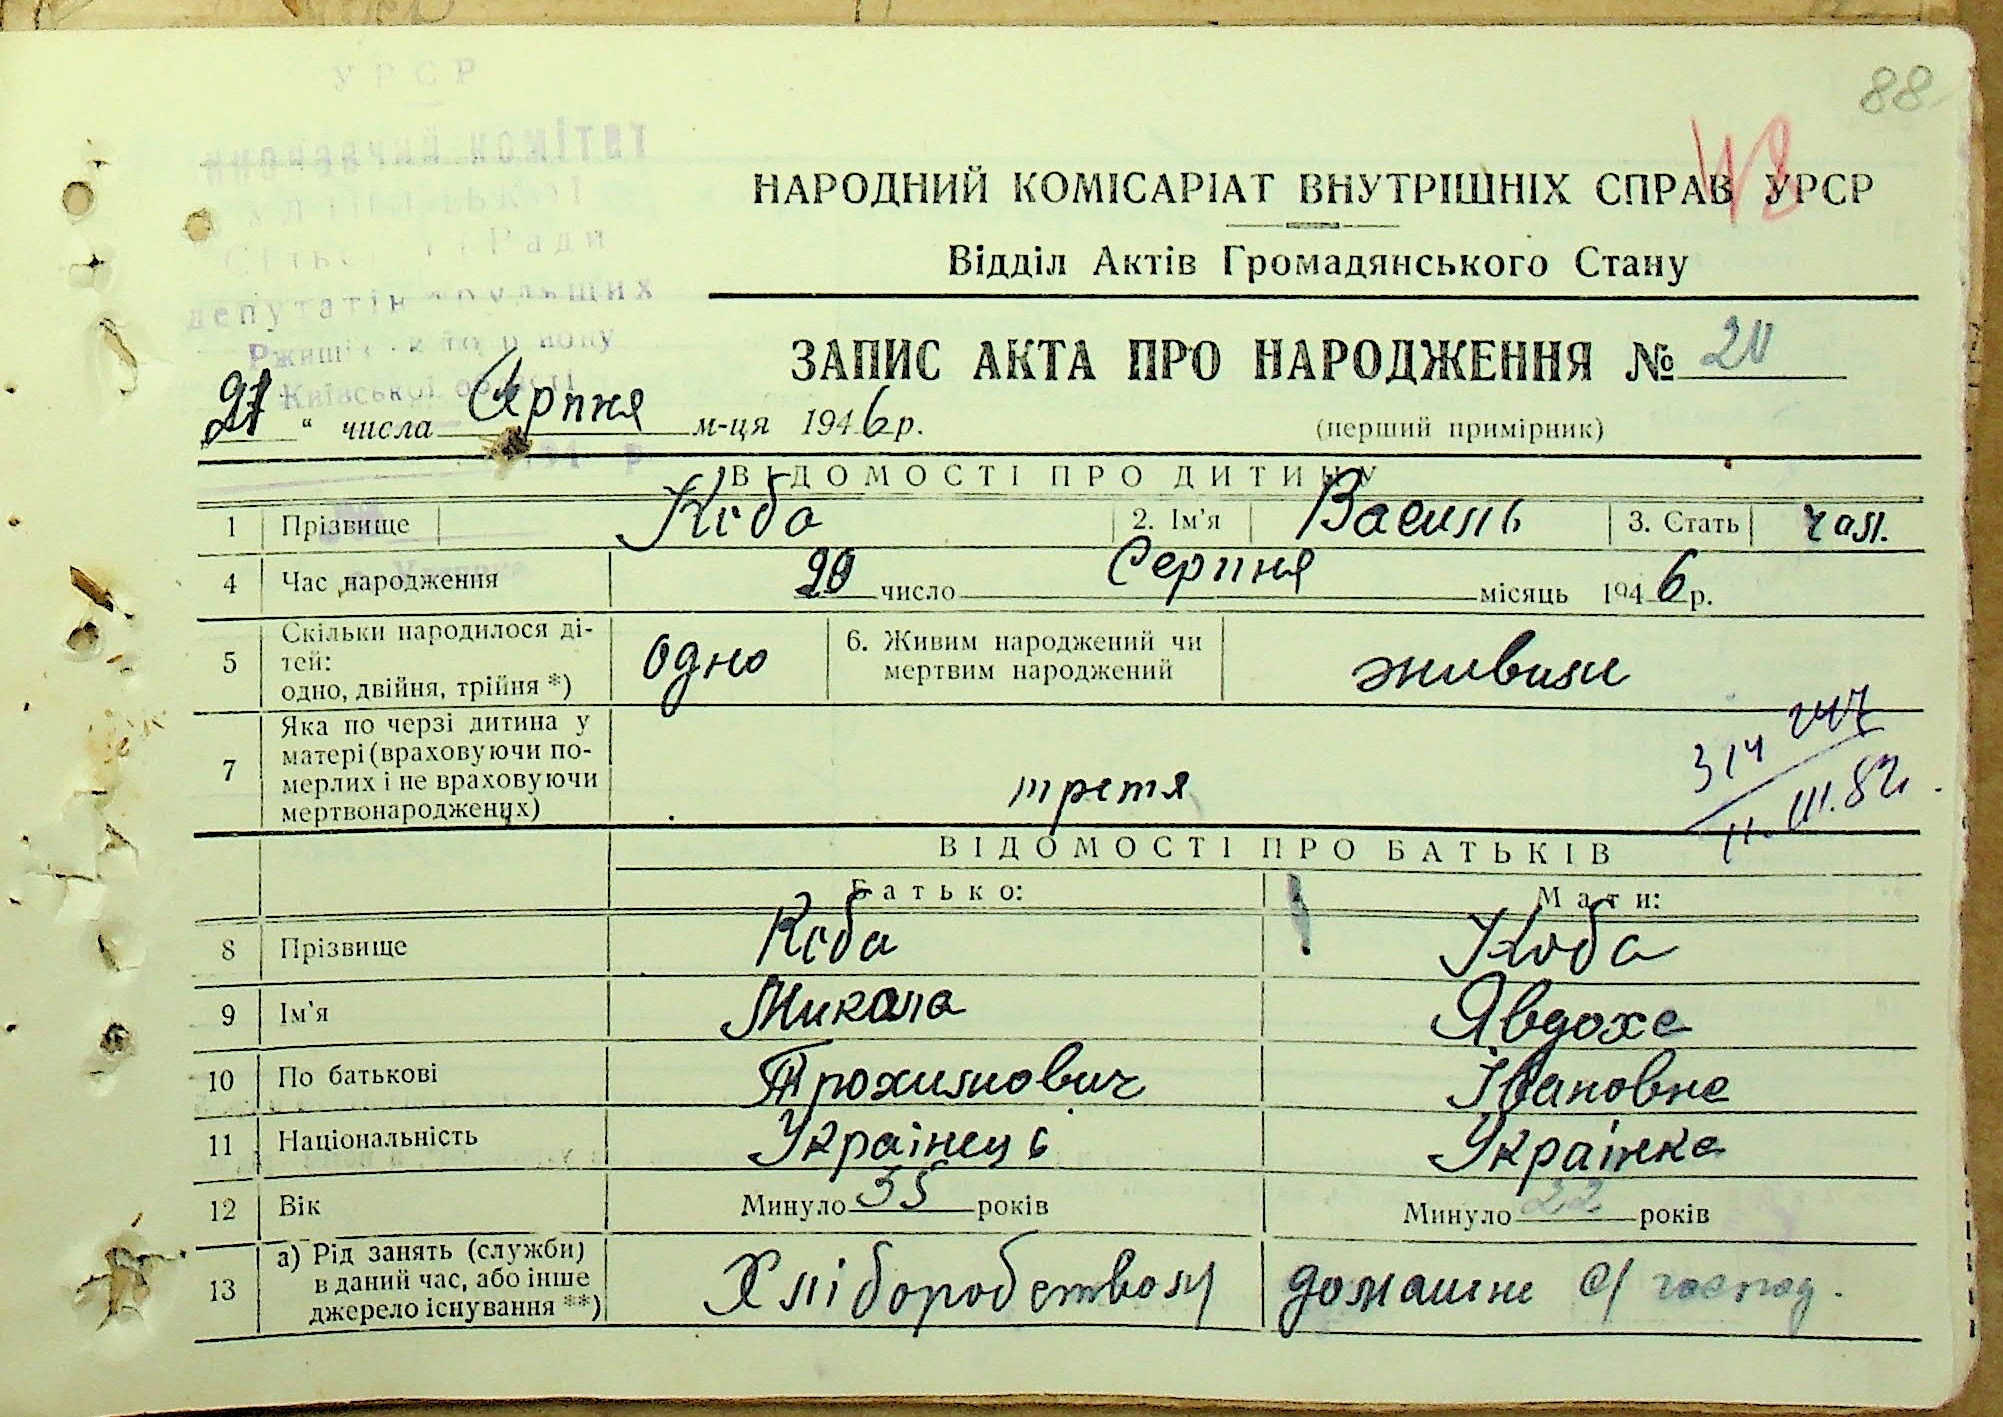 88
УРСР
НАРОДНИЙ КОМІСАРІАТ ВНУТРІШНІХ СПРАВ УРСР
Відділ Актів Громадянського Стану
депутатів трудящих
Київської області
ЗАПИС АКТА ПРО НАРОДЖЕННЯ № 20
21 " числа Серпня м-ця 1946 р.
(перший примірник)
ВІДОМОСТІ ПРО ДИТИНУ
1 Прізвище Коба 2. Ім'я Василь 3. Стать чол.
4 Час народження 20 число Серпня місяць 1946 р.
5 Скільки народилося ді-
тей:
одно, двійня, трійня *) одно 6. Живим народжений чи
мертвим народжений живим
7 Яка по черзі дитина у
матері (враховуючи по-
мерлих і не враховуючи
мертвонароджених) третя
314
11.III.82
ВІДОМОСТІ ПРО БАТЬКІВ
Батько: Мати:
8 Прізвище Коба Коба
9 Ім'я Микола Явдоха
10 По батькові Трохимович Івановна
11 Національність Українець Українка
12 Вік Минуло 35 років Минуло 22 років
13 а) Рід занять (служби)
в даний час, або інше
джерело існування **) Хліборобством домашне с/господ.